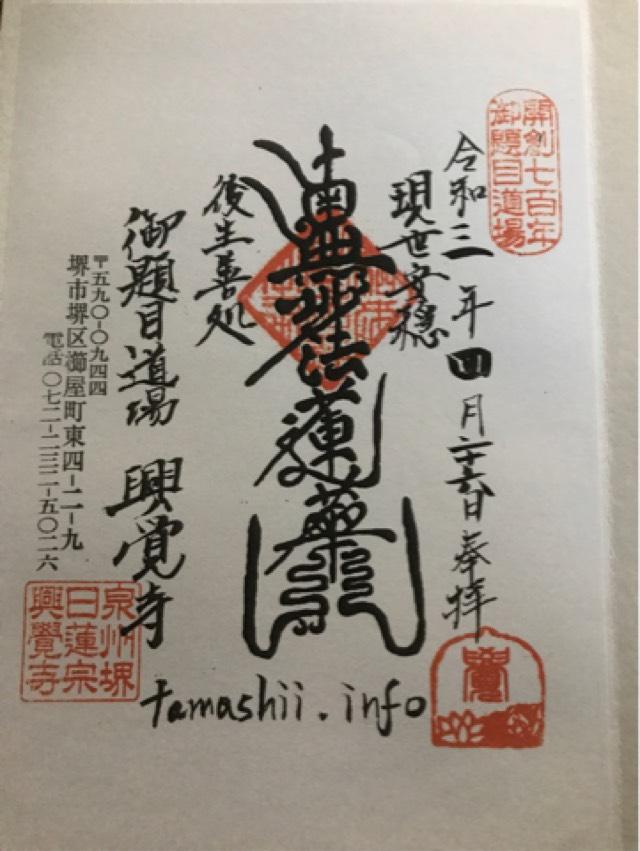 開創七百年
御題目道場
令和三年四月二十六日奉拝
現世安穏
南無妙法蓮華経
後生善処
御題目道場 興覚寺
〒五九〇-〇九四四
堺市堺区櫛屋町東四-二-九
電話〇七二-二三二-五〇二六
泉州堺
日蓮宗
興覺寺
tamashii.info